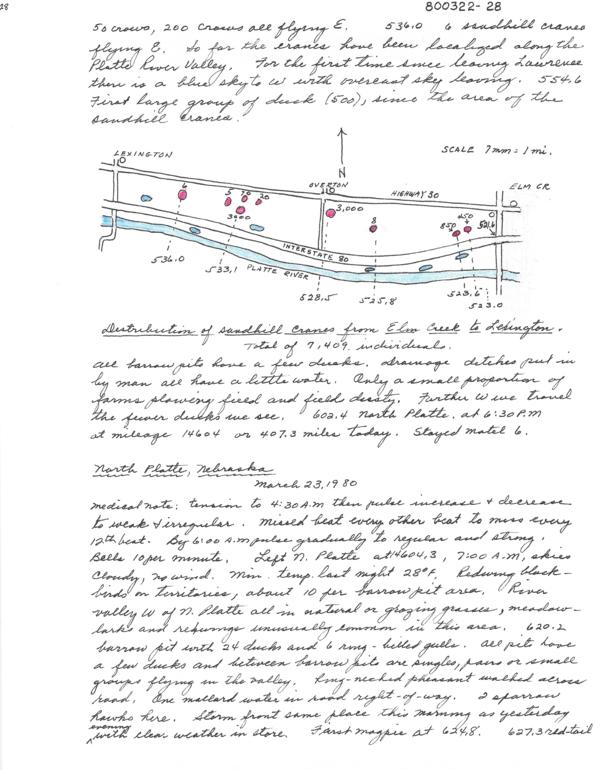 28
800322-28
50 crows, 200 crows all flying E. 536.0 6 sandhill cranes
flying E. So far the cranes have been localized along the
Platte River Valley. For the first time since leaving Lawrence
there is a blue sky to W with overcast sky leaving. 554.6
First large group of duck (500), since the area of the
sandhill cranes.
N
SCALE 7mm = 1 mi.
LEXINGTON
OVERTON
HIGHWAY 30
ELM CR
6
5
70
20
3900
3,000
8
850
450
521.6
INTERSTATE 80
PLATTE RIVER
536.0
533.1
528.5
525.8
523.6
523.0
Distribution of sandhill cranes from Elm Creek to Lexington.
Total of 7,409 individuals.
All barrow pits have a few ducks. Drainage detches put in
by man all have a little water. Only a small proportion of
farms plowing field and field dusty. Further W we travel
the fewer ducks we see. 602.4 North Platte, at 6:30 P.M
at mileage 14604 or 407.3 miles today. Stayed motel 6.
North Platte, Nebraska
March 23, 1980
Medical note: tension to 4:30 A.M then pulse increase + decrease
to weak + irregular. Missed beat every other beat to miss every
12th beat. By 6:00 A.M pulse gradually to regular and strong.
Bells 10 per minute. Left N. Platte at 14604.3, 7:00 A.M, skies
cloudy, no wind. Min. temp. last night 28°F. Redwing black-
birds on territories, about 10 per barrow pit area. River
valley W of N. Platte all in natural or grazing grasses, meadow-
larks and redwings unusually common in this area. 620.2
barrow pit with 24 ducks and 6 ring-billed gulls. All pits have
a few ducks and between barrow pits are singles, pairs or small
groups flying in the valley. Ring-necked pheasant walked across
road. One mallard water in road right-of-way. 2 sparrow
hawks here. Storm front same place this morning as yesterday
evening
with clear weather in store. First magpie at 624.8. 627.3 red-tail